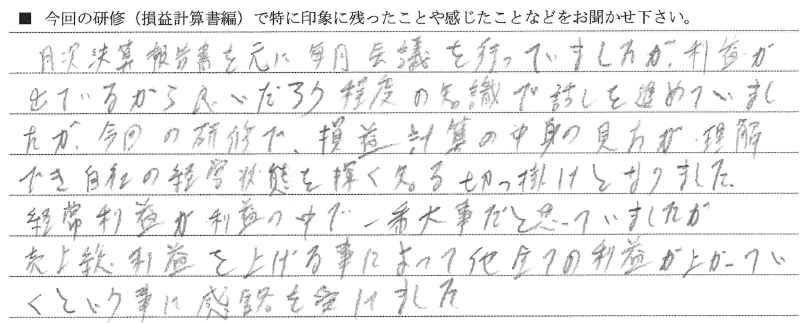 ■ 今回の研修（損益計算書編）で特に印象に残ったことや感じたことなどをお聞かせ下さい。
月次決算報告書を元に毎月会議を行っていましたが、利益が
出ているから良いだろう程度の知識で話しを進めていまし
たが、今回の研修で、損益計算の中身の見方が理解
でき自社の経営状態を深く知る切っ掛けとなりました。
経常利益が利益の中で一番大事だと思っていましたが
売上総利益を上げる事によって他全ての利益が上がってい
くという事に感銘を受けました